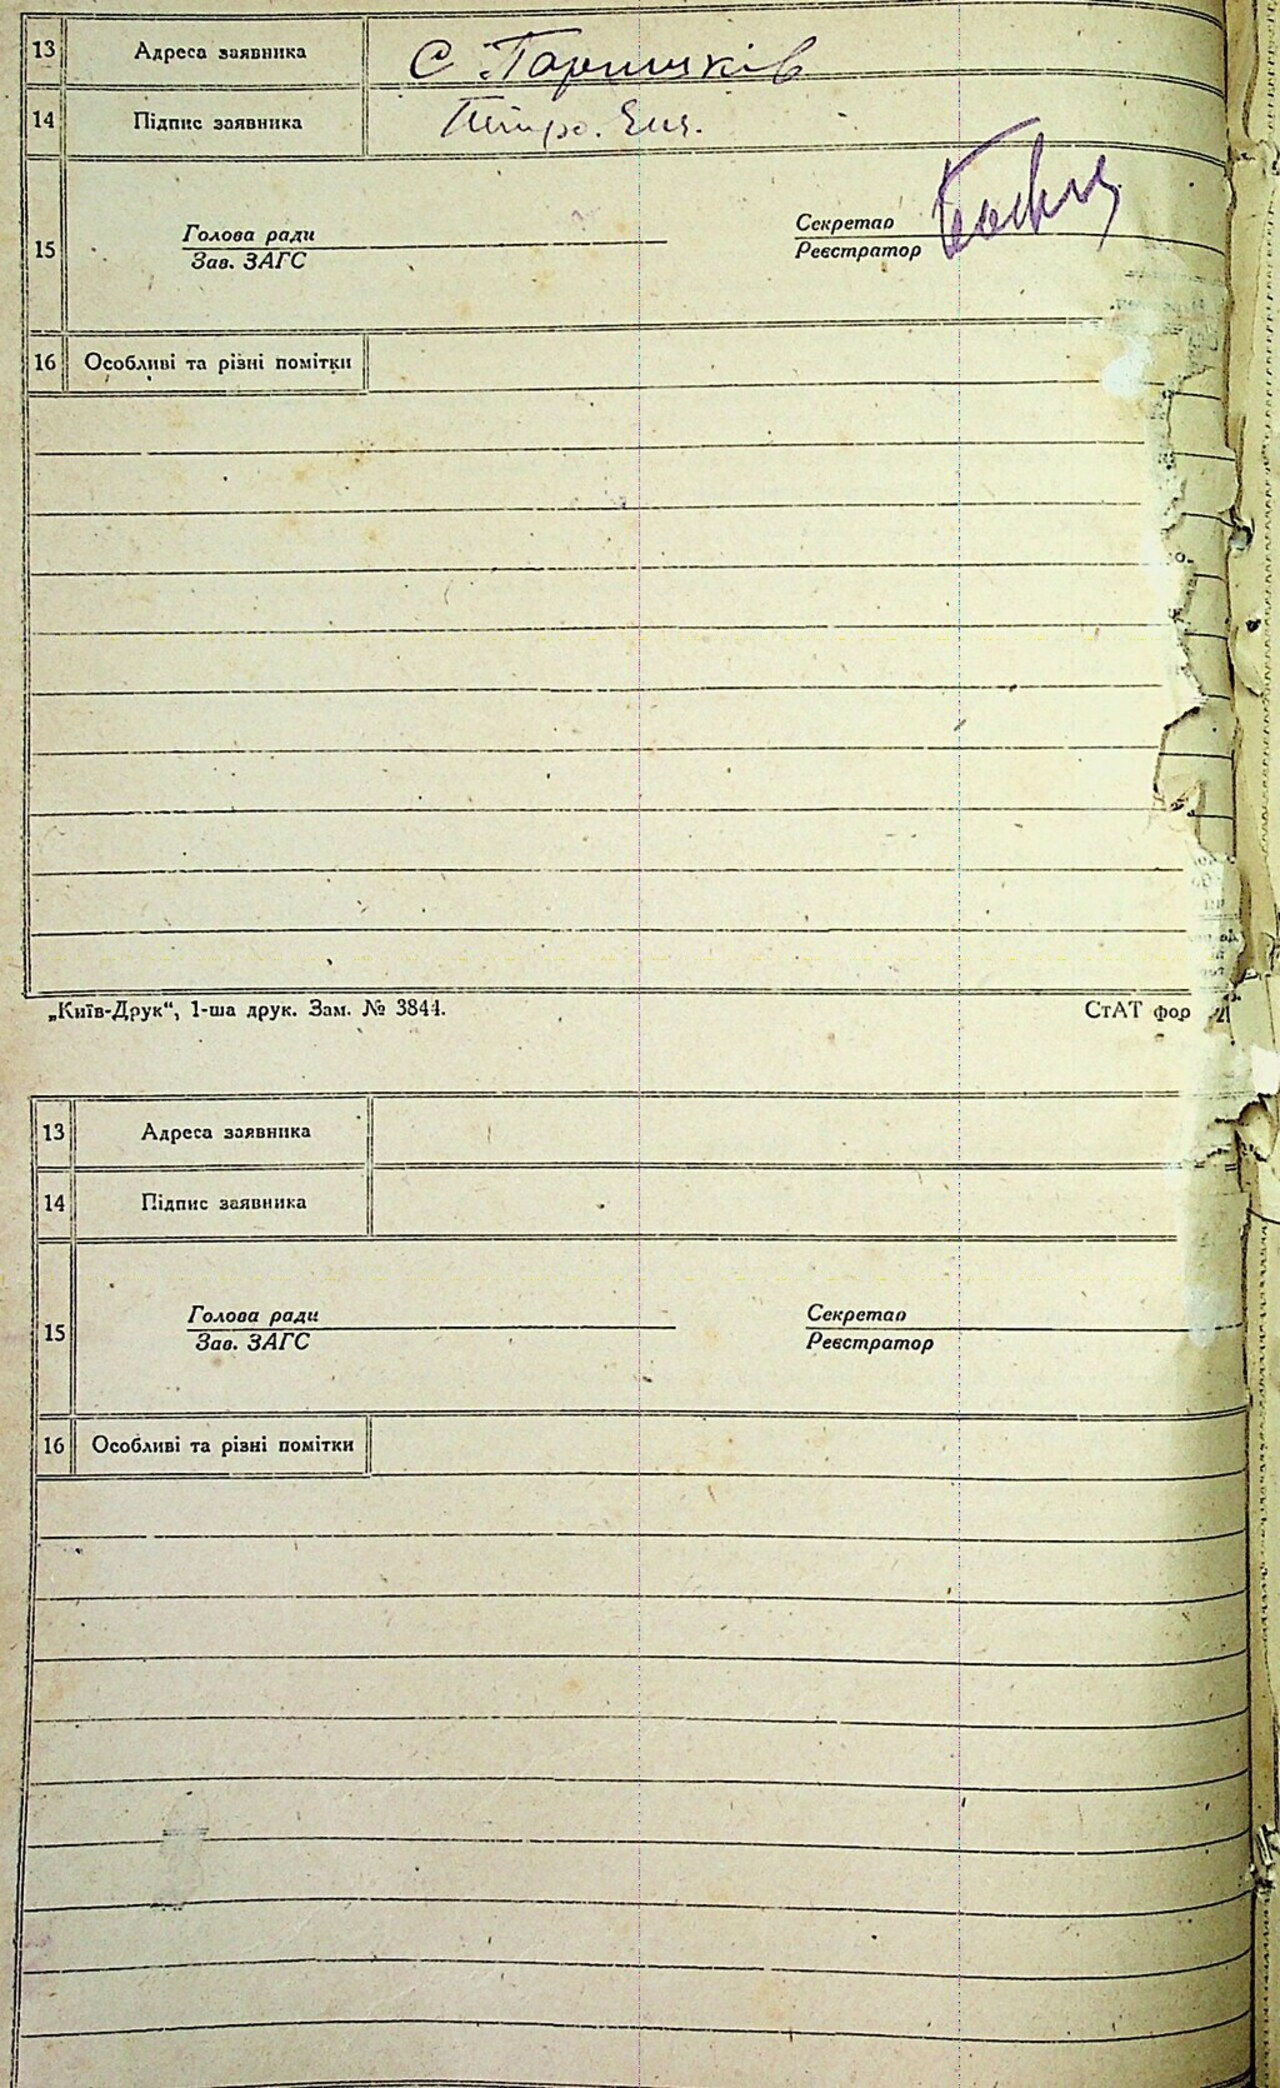 13 Адреса заявника С. Горишків
14 Підпис заявника
15 Голова ради Секретар
Зав. ЗАГС Реєстратор
16 Особливі та різні помітки
„Київ-Друк“, 1-ша друк. Зам. № 3844. СтАТ фор
13 Адреса заявника
14 Підпис заявника
15 Голова ради Секретар
Зав. ЗАГС Реєстратор
16 Особливі та різні помітки